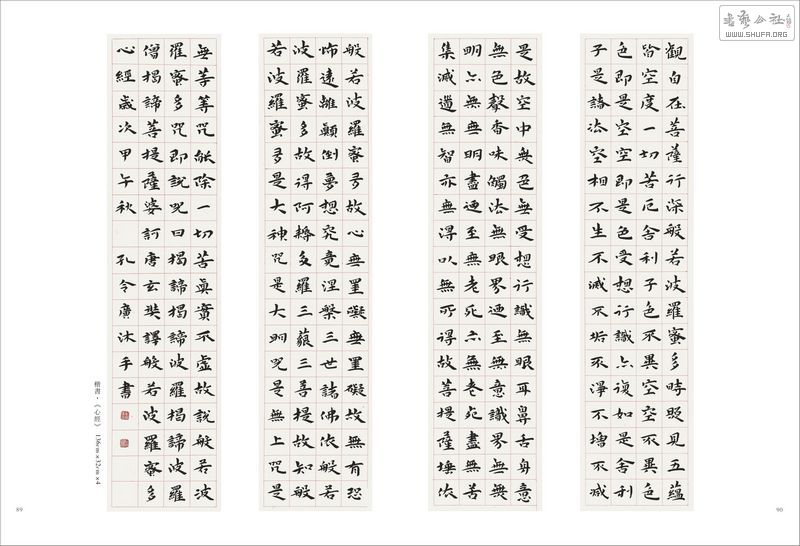 書藝公社
WWW.SHUFA.ORG
觀自在菩薩行深般若波羅蜜多時照見五蘊
皆空度一切苦厄舍利子色不異空空不異色
色即是空空即是色受想行識亦復如是舍利
子是諸法空相不生不滅不垢不淨不增不減
是故空中無色無受想行識無眼耳鼻舌身意
無色聲香味觸法無眼界迺至無意識界無無
明亦無無明盡迺至無老死亦無老死盡無苦
集滅道無智亦無得以無所得故菩提薩埵依
般若波羅蜜多故心無罣礙無罣礙故無有恐
怖遠離顛倒夢想究竟涅槃三世諸佛依般若
波羅蜜多故得阿耨多羅三藐三菩提故知般
若波羅蜜多是大神咒是大明咒是無上咒是
無等等咒能除一切苦真實不虛故說般若波
羅蜜多咒即說咒曰揭諦揭諦波羅揭諦波羅
僧揭諦菩提薩婆訶唐玄奘譯般若波羅蜜多
心經歲次甲午秋 孔令廣沐手書
楷書·《心經》 136cm×32cm×4
89
90